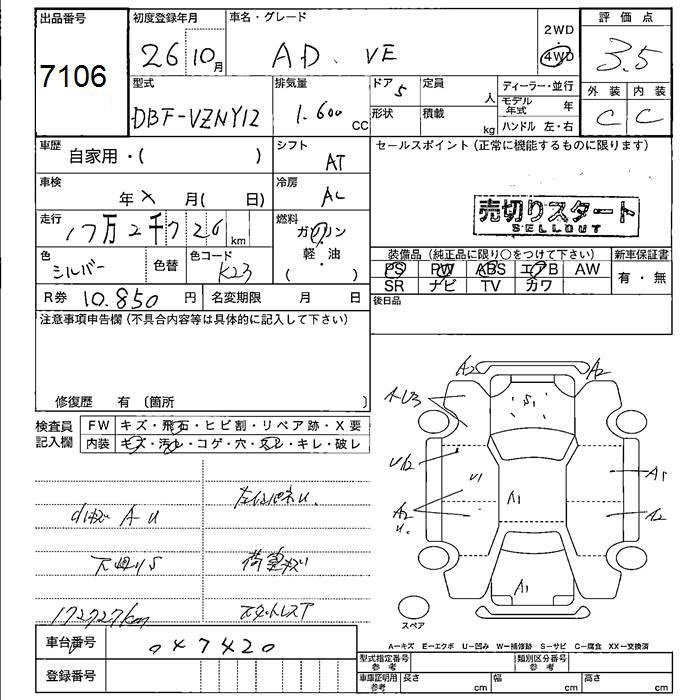 出品番号
7106
初度登録年月
26 10月
車名・グレード
AD. VE
2WD
4WD
評価点
3.5
外装 内装
C C
型式
DBF-VZNY12
排気量
1.600 CC
ドア 5
定員 人
形状
積載 kg
ディーラー・並行
モデル年式 年
ハンドル 左・右
車歴 自家用・( )
シフト AT
セールスポイント (正常に機能するものに限ります)
車検 年 × 月( 日)
冷房 AC
売切りスタート
SELLOUT
走行 17万2千726 km
燃料 ガソリン・軽・油 ( )
色 シルバー
色替
色コード K23
装備品 (純正品に限り○をつけて下さい)
新車保証書
PS PW ABS エアB AW
有・無
SR ナビ TV カワ
R券 10.850円
名変期限 月 日
後日品
注意事項申告欄 (不具合内容等は具体的に記入して下さい)
修復歴 有 〔箇所 〕
検査員記入欄
FW キズ・飛石・ヒビ割・リペア跡・X要
内装 キズ・汚レ・コゲ・穴・スレ・キレ・破レ
A-U
172727km
A2 A2
S1
U2
U1
A1
A2
U.
A1
A2
A1
スペア
A-キズ E-エクボ U-凹み W-補修跡 S-サビ C-腐食 XX-交換済
車台番号 047420
型式指定番号 参考
類別区分番号 参考
登録番号
車庫証明用 参考
長さ cm 幅 cm 高さ cm